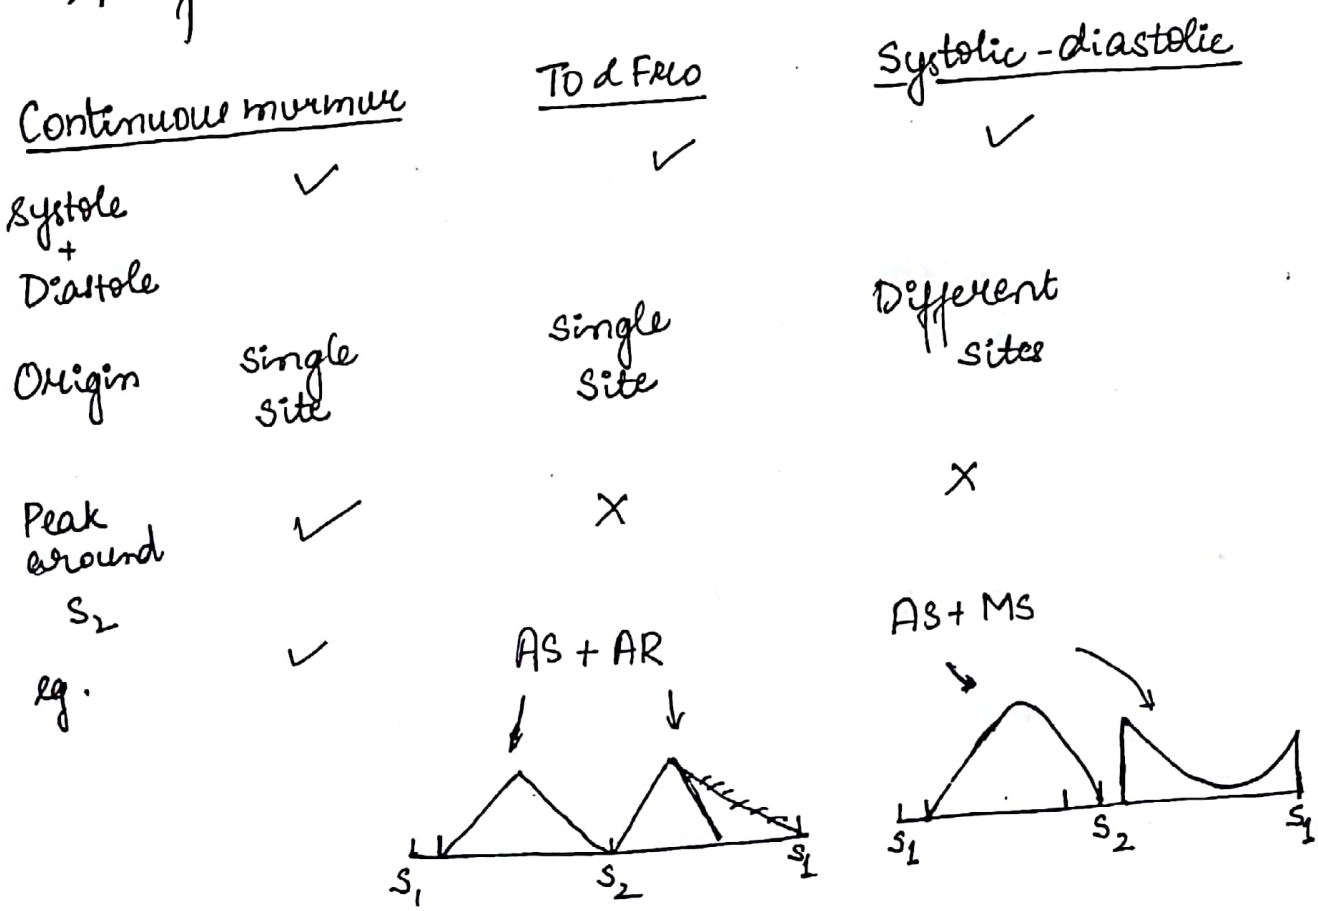 Continuous murmur To & Fro Systolic-diastolic
Systole + Diastole ✓ ✓ ✓
Origin Single Site Single Site Different Sites
Peak around S2 ✓ X X
eg. ✓ AS + AR AS + MS
S1 S2 S1 S1 S2 S1